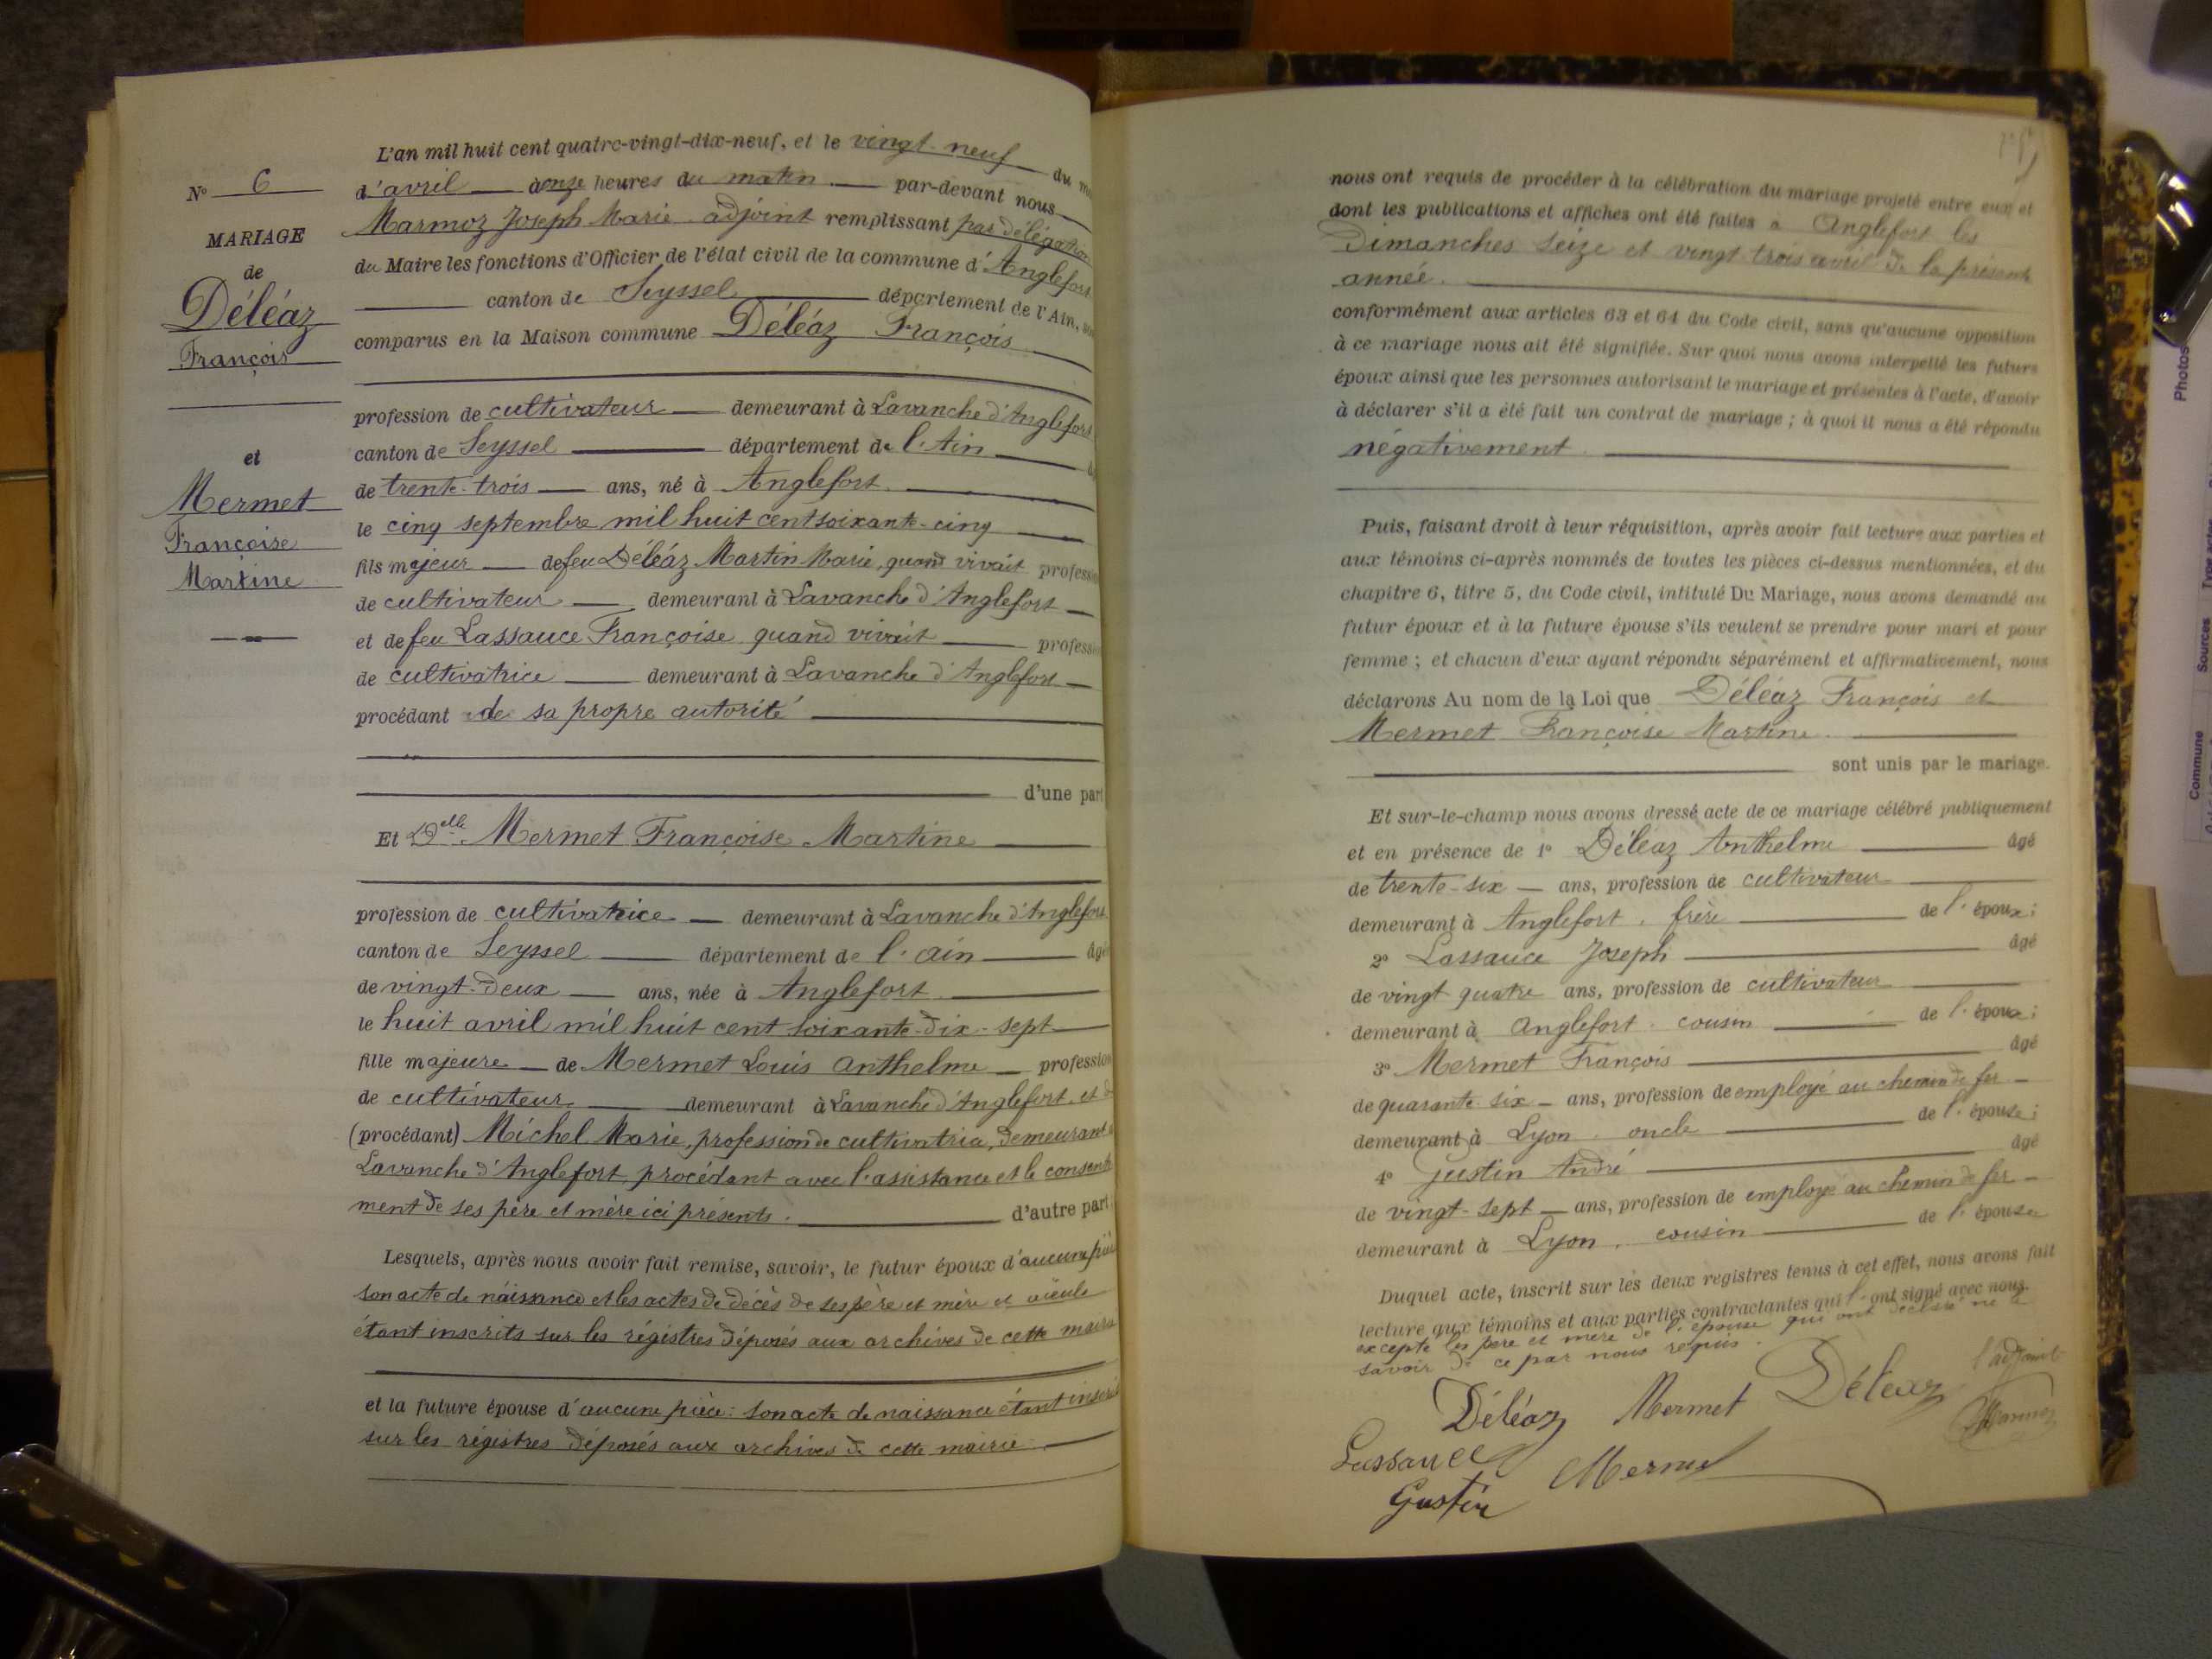 N° 6
MARIAGE
de
Déléaz
François
et
Mermet
Françoise
Martine
L'an mil huit cent quatre-vingt-dix-neuf, et le vingt-neuf du
d'avril à onze heures du matin par-devant nous
Marmoz Joseph Marie adjoint remplissant par délégation
du Maire les fonctions d'Officier de l'état civil de la commune d'Anglefort
canton de Seyssel département de l'Ain,
comparus en la Maison commune Déléaz François
profession de cultivateur demeurant à Lavanche d'Anglefort
canton de Seyssel département de l'Ain
de trente-trois ans, né à Anglefort
le cinq septembre mil huit cent soixante-cinq
fils majeur de feu Déléaz Martin Marie, quand vivait profession
de cultivateur demeurant à Lavanche d'Anglefort
et de feu Lassauce Françoise quand vivait profession
de cultivatrice demeurant à Lavanche d'Anglefort
procédant de sa propre autorité
d'une part
Et Delle Mermet Françoise Martine
profession de cultivatrice demeurant à Lavanche d'Anglefort
canton de Seyssel département de l'ain âgé
de vingt-deux ans, née à Anglefort
le huit avril mil huit cent soixante-dix-sept
fille majeure de Mermet Louis Anthelme profession
de cultivateur demeurant à Lavanche d'Anglefort, et d
(procédant) Michel Marie, profession de cultivatrice, demeurant à
Lavanche d'Anglefort procédant avec l'assistance et le consente
ment de ses père et mère ici présents. d'autre part
Lesquels, après nous avoir fait remise, savoir, le futur époux d'aucune pièce
son acte de naissance et les actes de décès de ses père et mère et aieuls
étant inscrits sur les régistres déposés aux archives de cette mairie
et la future épouse d'aucune pièce: son acte de naissance étant inscrit
sur les régistres déposés aux archives de cette mairie
nous ont requis de procéder à la célébration du mariage projeté entre eux et
dont les publications et affiches ont été faites à Anglefort les
Dimanches seize et vingt trois avril de la présente
année.
conformément aux articles 63 et 64 du Code civil, sans qu'aucune opposition
à ce mariage nous ait été signifiée. Sur quoi nous avons interpellé les futurs
époux ainsi que les personnes autorisant le mariage et présentes à l'acte, d'avoir
à déclarer s'il a été fait un contrat de mariage ; à quoi il nous a été répondu
négativement
Puis, faisant droit à leur réquisition, après avoir fait lecture aux parties et
aux témoins ci-après nommés de toutes les pièces ci-dessus mentionnées, et du
chapitre 6, titre 5, du Code civil, intitulé Du Mariage, nous avons demandé au
futur époux et à la future épouse s'ils veulent se prendre pour mari et pour
femme ; et chacun d'eux ayant répondu séparément et affirmativement, nous
déclarons Au nom de la Loi que Déléaz François et
Mermet Françoise Martine.
sont unis par le mariage.
Et sur-le-champ nous avons dressé acte de ce mariage célébré publiquement
et en présence de 1° Déléaz Anthelme âgé
de trente-six ans, profession de cultivateur
demeurant à Anglefort, frère de l'époux;
2° Lassauce Joseph âgé
de vingt quatre ans, profession de cultivateur
demeurant à Anglefort cousin de l'époux;
3° Mermet François âgé
de quarante six ans, profession de employé au chemin de fer
demeurant à Lyon oncle de l'épouse;
4° Gustin André âgé
de vingt-sept ans, profession de employé au chemin de fer
demeurant à Lyon, cousin de l'épouse
Duquel acte, inscrit sur les deux registres tenus à cet effet, nous avons fait
lecture aux témoins et aux parties contractantes qui l'ont signé avec nous.
excepté les père et mère de l'épouse qui ont déclaré ne le
savoir de ce par nous requis.
Déléaz Mermet Déléaz l'adjoint
Marmoz
Lassauce Mermet
Gustin
Photos
Commune Sources Type actes